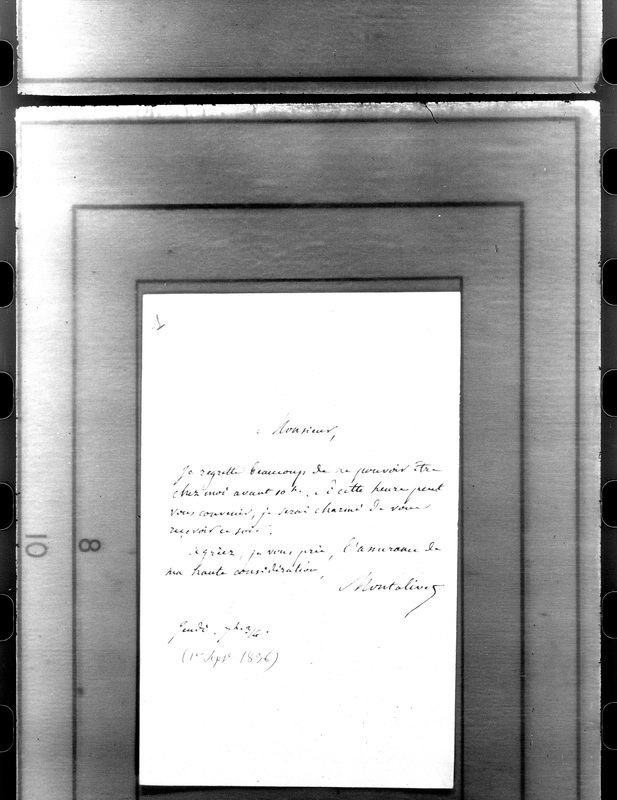 Monsieur,
Je regrette beaucoup de ne pouvoir être
chez moi avant 10 h. Si cette heure peut
vous convenir, je serai charmé de vous
recevoir ce soir.
Agréez, je vous prie, l'assurance de
ma haute considération,
Montalivet
Jeudi. 7 h.
(1er Sept 1836)
10
8